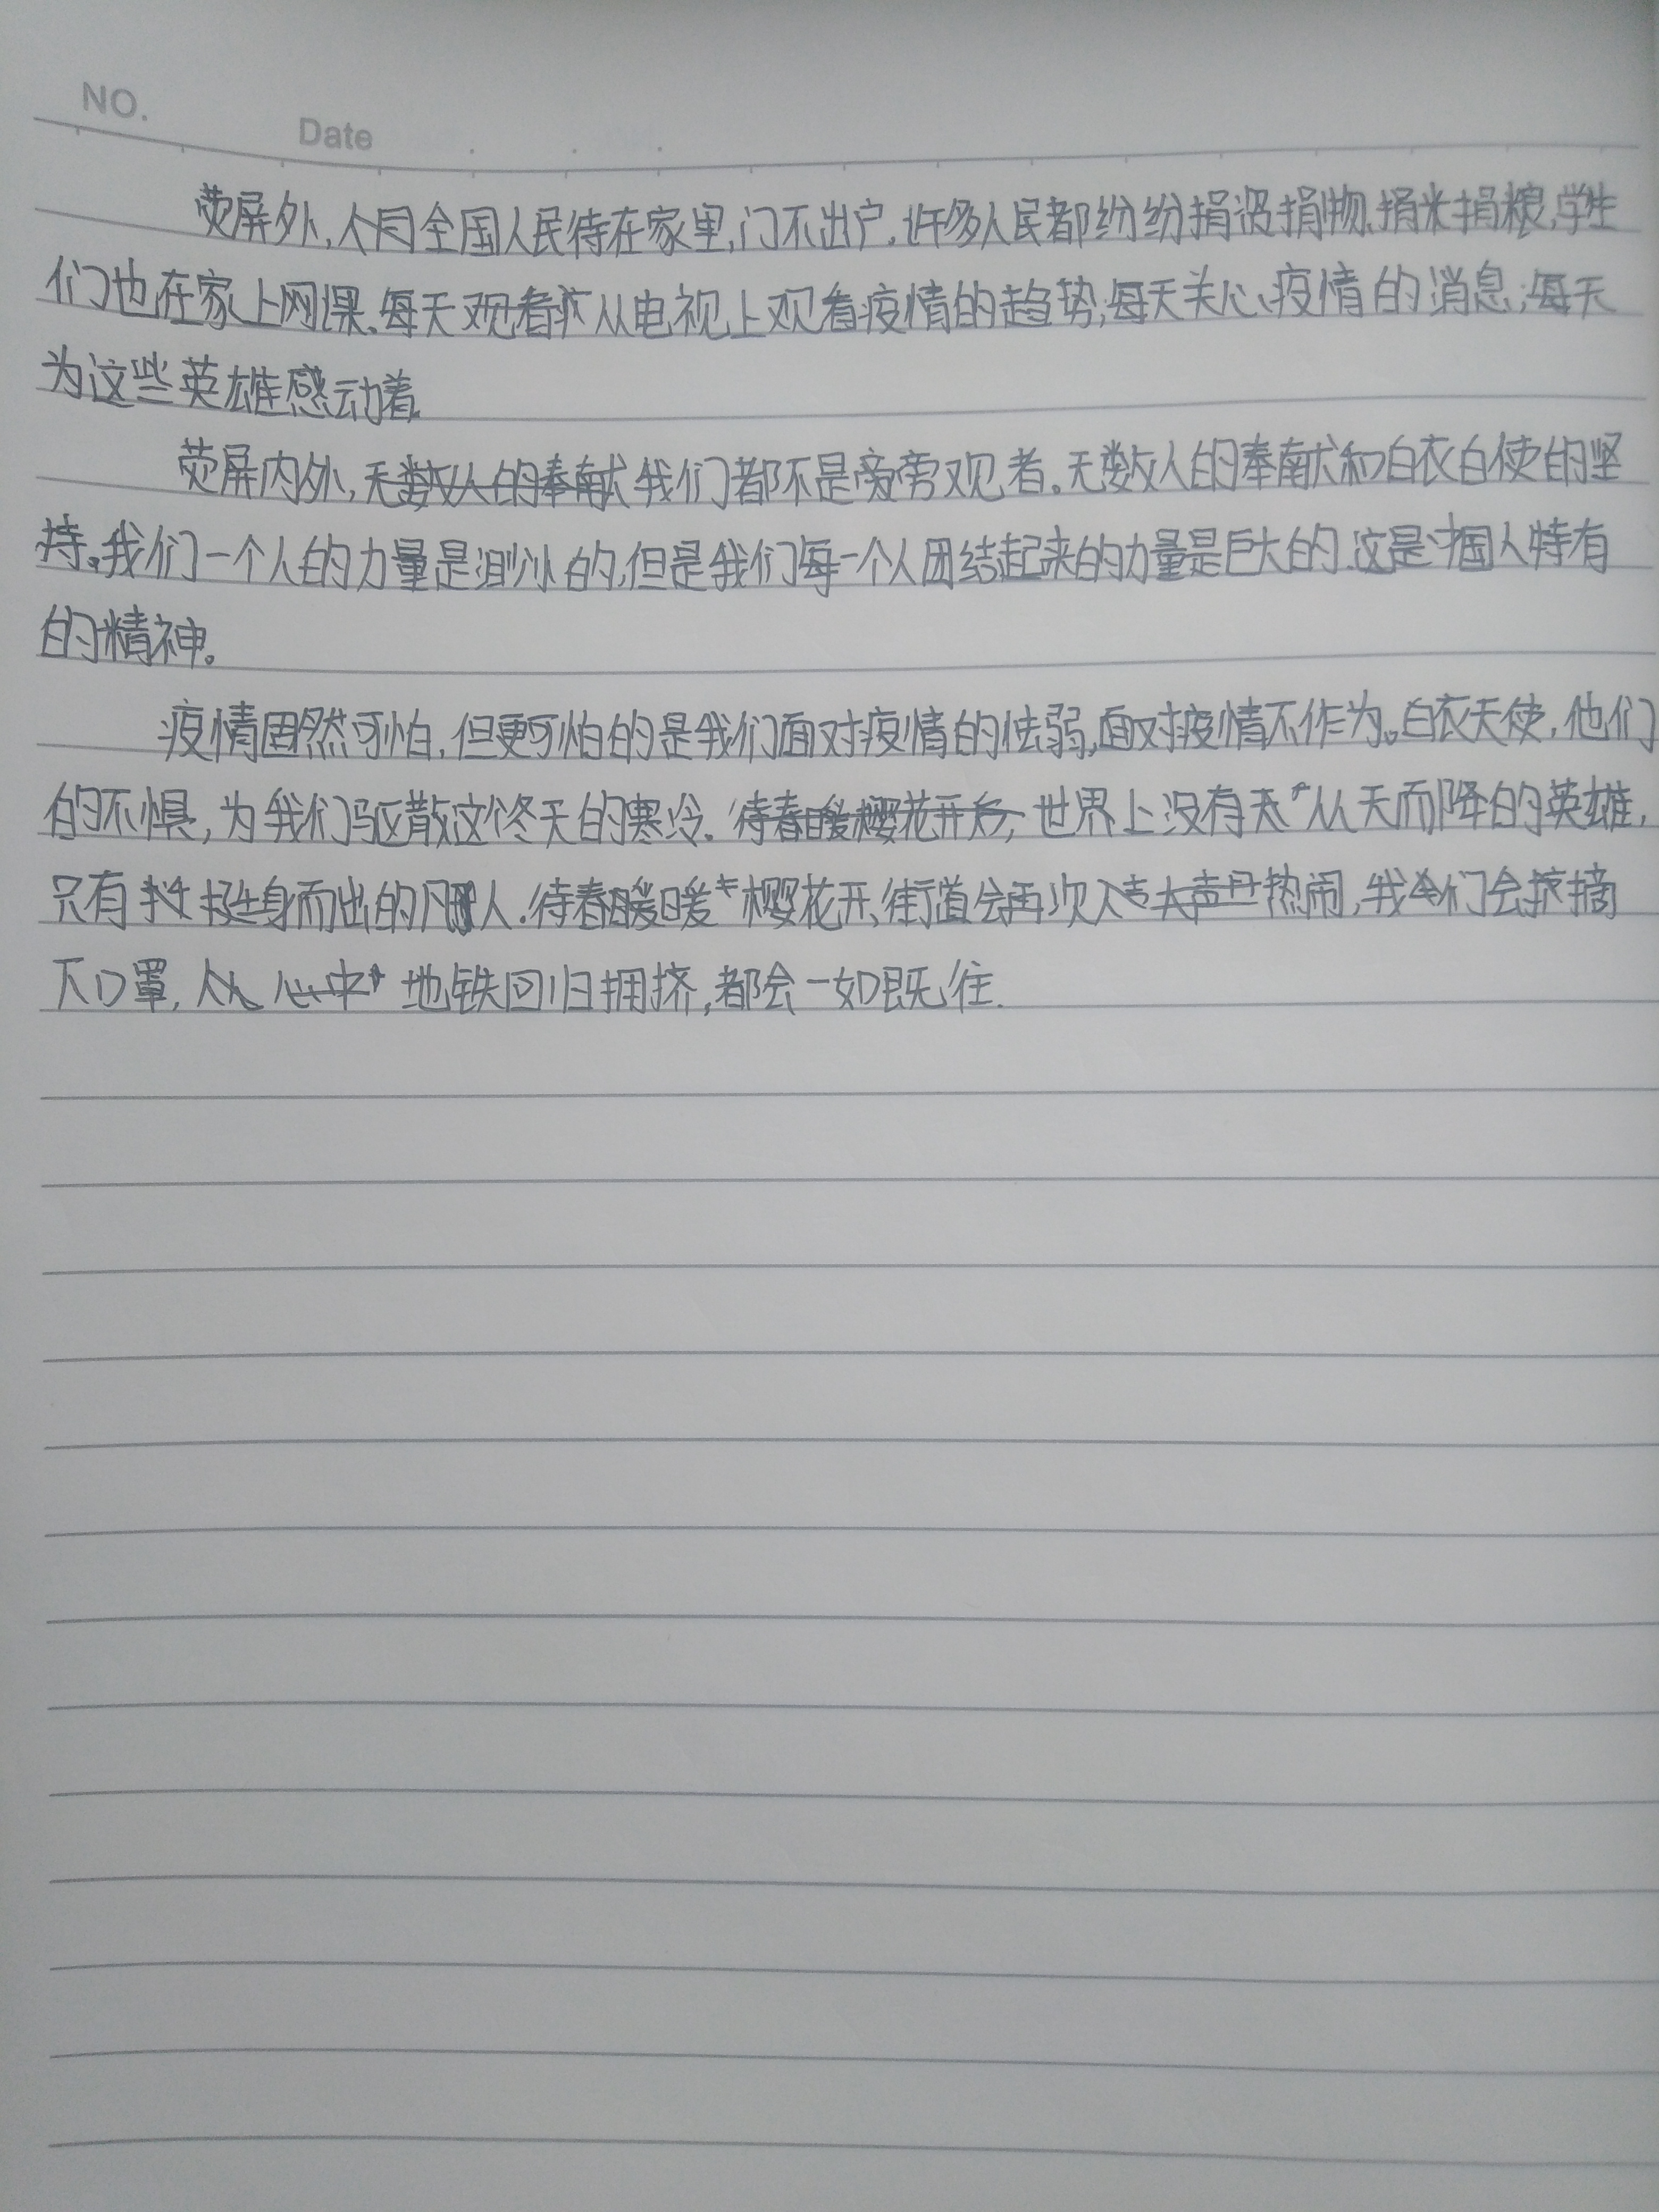 NO.
Date
荧屏外,全国人民待在家里,门不出户.许多人民都纷纷捐资捐物、捐米捐粮,学生
们也在家上网课、每天从电视上观看疫情的趋势;每天关心疫情的消息;每天
为这些英雄感动着
荧屏内外,我们都不是旁观者。无数人的奉献和白衣白使的坚
持。我们一个人的力量是渺小的,但是我们每一个人团结起来的力量是巨大的.这是中国人特有
的精神。
疫情固然可怕,但更可怕的是我们面对疫情的怯弱,面对疫情不作为。白衣天使,他们
的不惧,为我们驱散这个冬天的寒冷.世界上没有从天而降的英雄,
只有挺身而出的凡人.待春暖樱花开,街道会再次热闹,我们会摘
下口罩,地铁回归拥挤,都会一如既往.